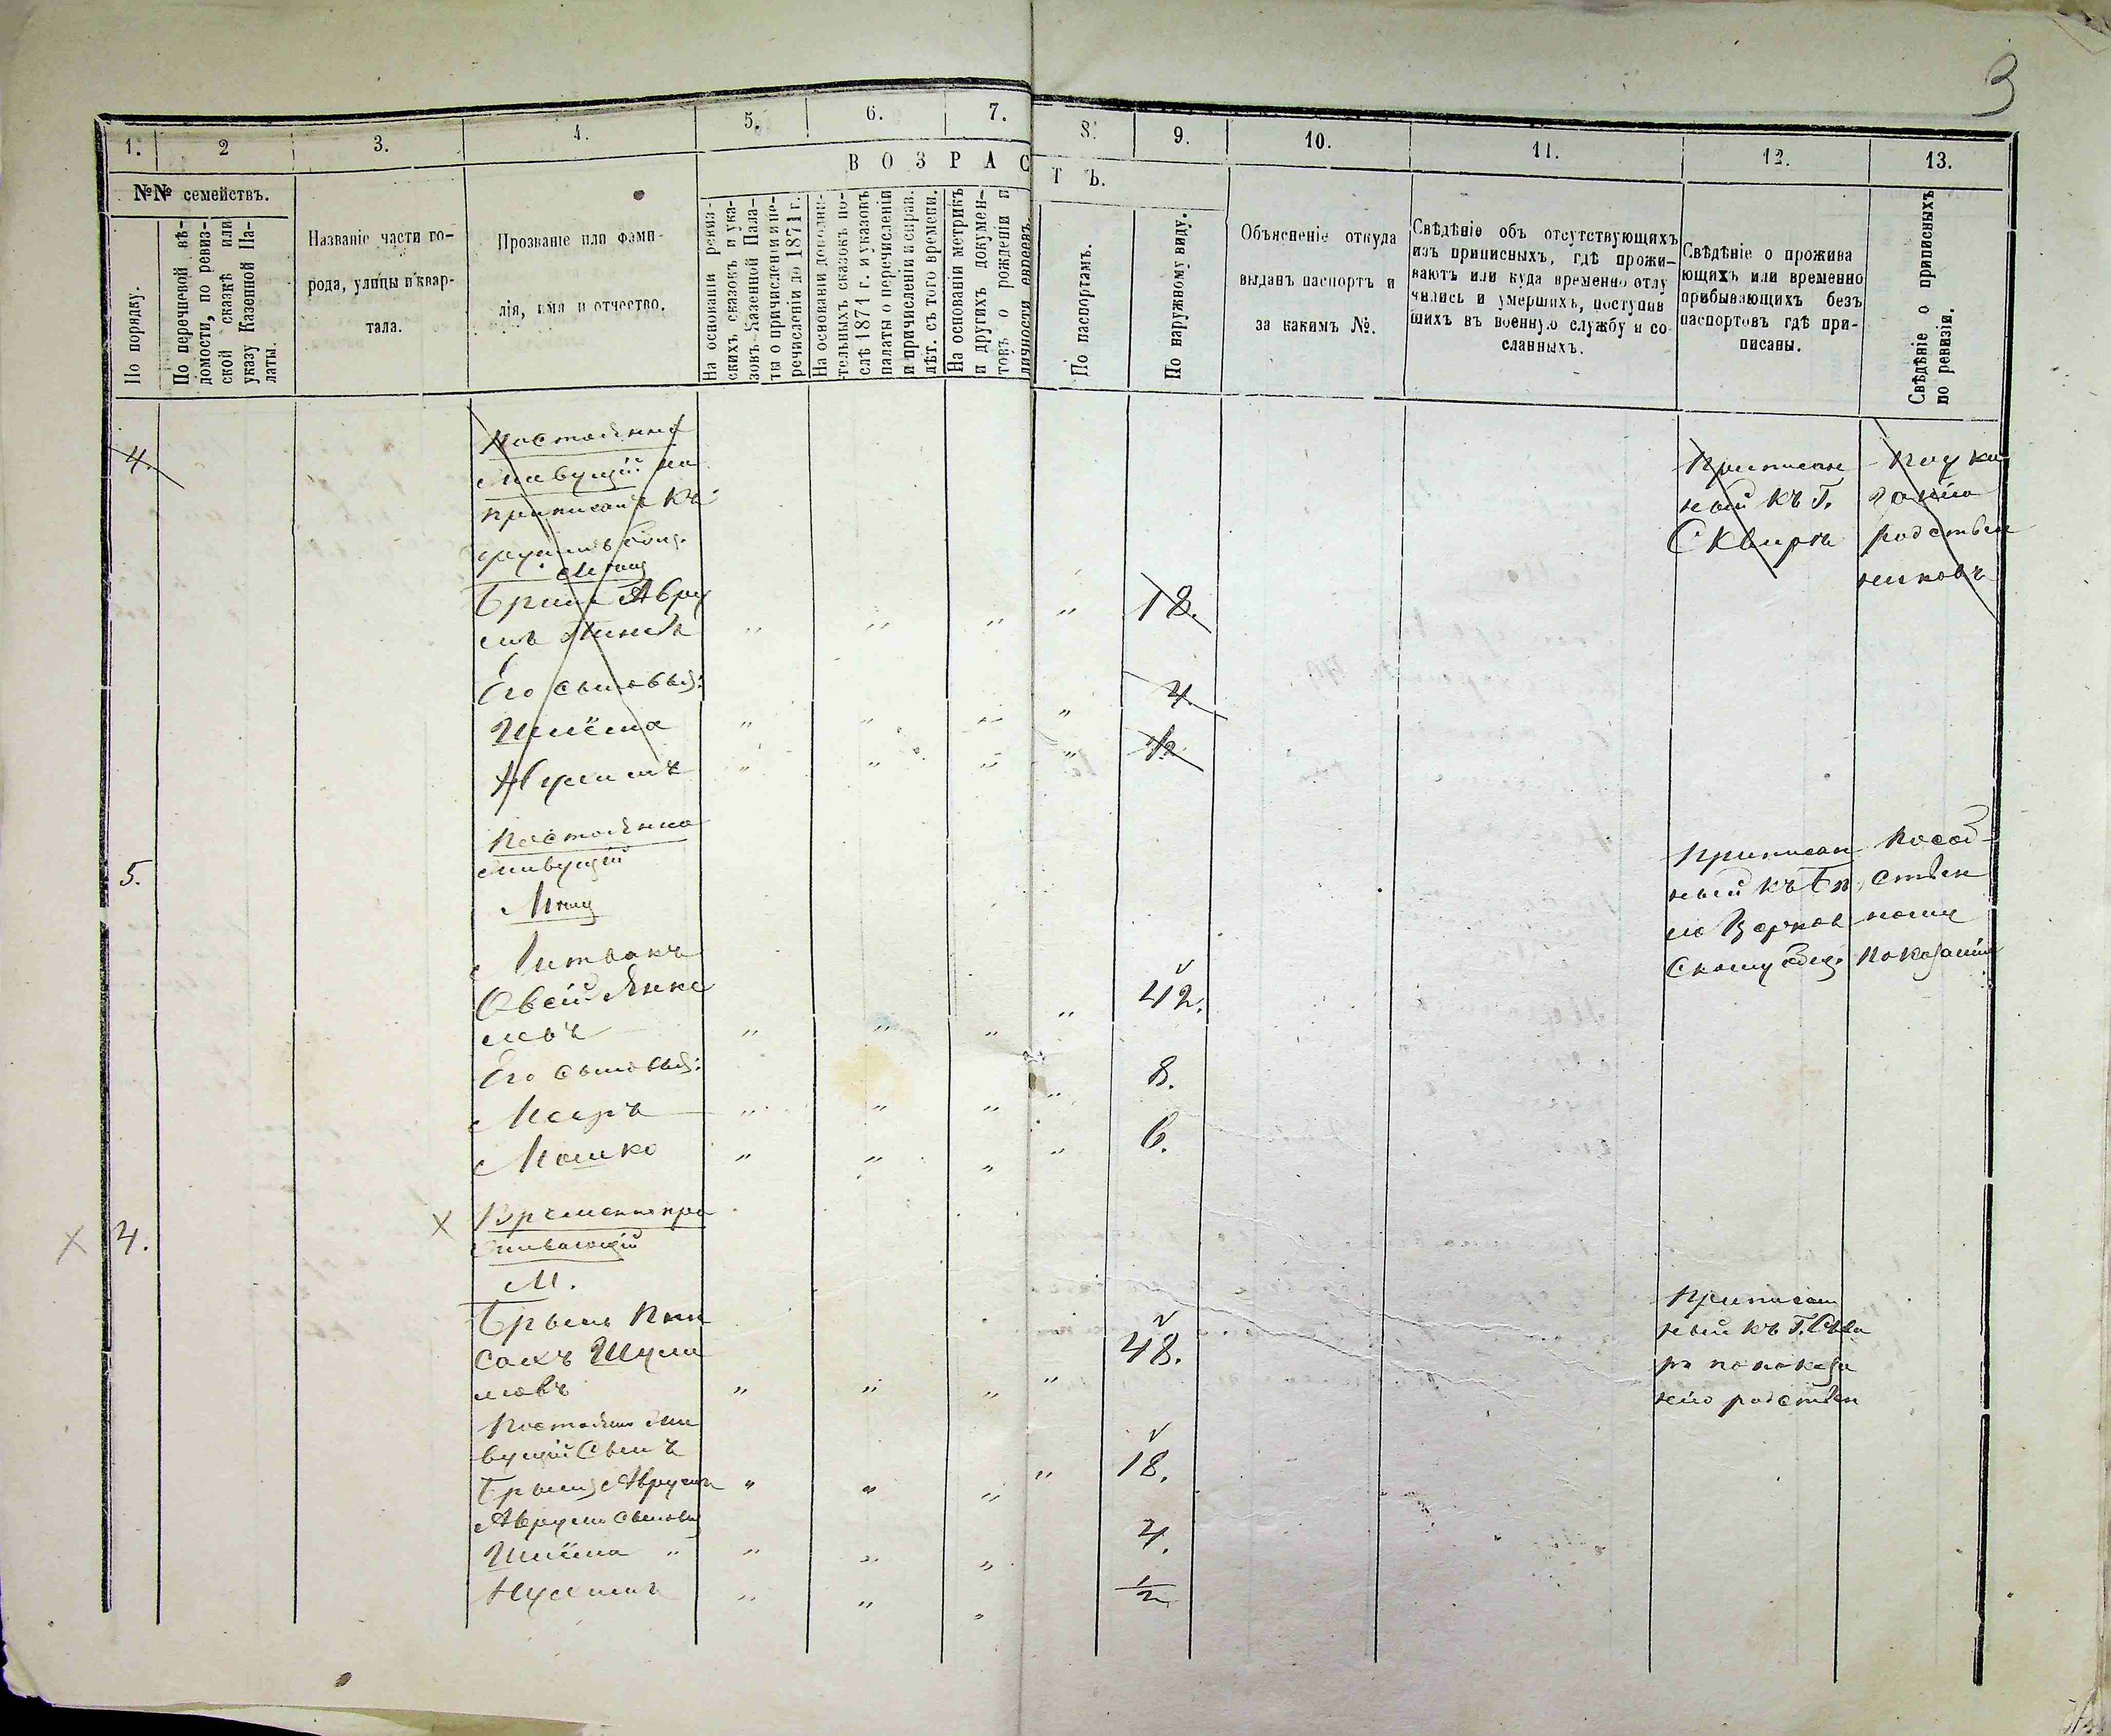 3
1.
2
3.
4.
5.
6.
7.
8.
9.
10.
11.
12.
13.
№№ семействъ.
ВОЗРАСТЪ.
По порядку.
По перечневой вѣ-
домости, по ревиз-
ской сказкѣ или
указу Казенной Па-
латы.
Названіе части го-
рода, улицы и квар-
тала.
Прозваніе или фами-
лія, имя и отчество.
На основаніи ревиз-
скихъ сказокъ и ука-
зовъ Казенной Пала-
ты о причисленіи и пе-
речисленіи до 1871 г.
На основаніи дополни-
тельныхъ сказокъ по-
слѣ 1871 г. и указовъ
палаты о перечисленіи
и причисленіи и справ.
лѣт. съ того времени.
На основаніи метрикъ
и другихъ докумен-
товъ о рожденіи и
личности евреевъ.
По паспортамъ.
По наружному виду.
Объясненіе откуда
выданъ паспортъ и
за какимъ №.
Свѣдѣніе объ отсутствующихъ
изъ приписныхъ, гдѣ прожи-
ваютъ или куда временно отлу
чились и умершихъ, поступив
шихъ въ военную службу и со-
сланныхъ.
Свѣдѣніе о прожива
ющихъ или временно
прибывающихъ безъ
паспортовъ гдѣ при-
писаны.
Свѣдѣніе о приписныхъ
по ревизіи.
4.
Постоянно
живущій не
приписанъ къ
Мѣщ
Авру
18.
Его сыновья:
Шлёма
4
1/2
Приписан
ный къ Г.
Сквирѣ
По ука
занію
родствен
никовъ
5.
Постоянно
живущій
Мѣщ
Литвакъ
Овсій Янке
левъ
42.
Его сыновья:
Мееръ
8.
Мошко
6.
Приписан
ный къ Бѣ
ло Церков
скому общ.
По соб-
ствен
ному
показанію
4.
Временно про
живающій
М.
Пин
сахъ Шули
мовъ
48.
Постоянно жи
вущій Сынъ
18.
Шлёма
4.
1/2
Приписан
ный къ Г. Скви
рѣ по показа
нію родствен